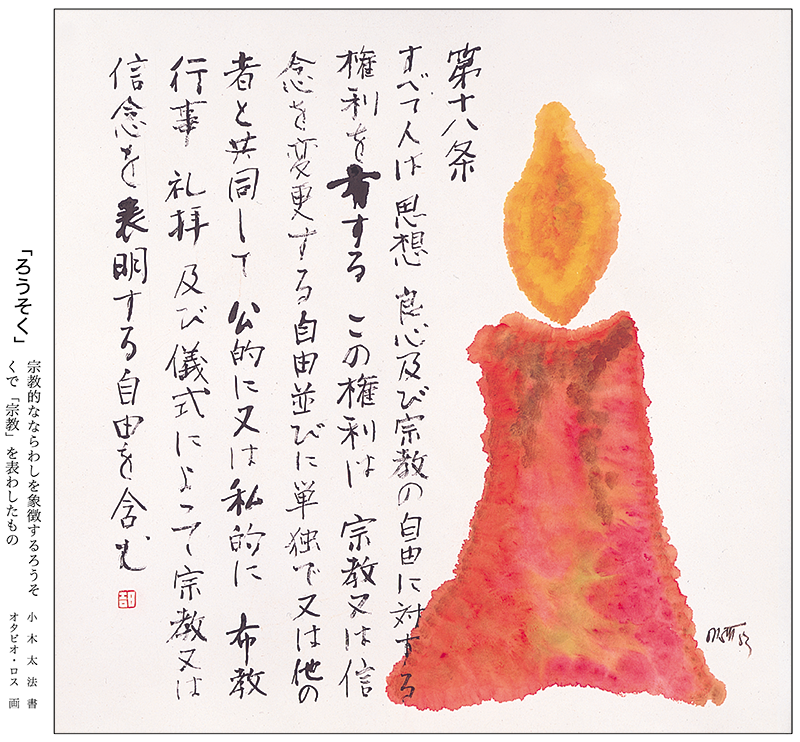 第十八条
すべて人は 思想 良心及び宗教の自由に対する
権利を有する この権利は 宗教又は信
念を変更する自由並びに単独で又は他の
者と共同して 公的に又は私的に 布教
行事 礼拝 及び儀式によって宗教又は
信念を表明する自由を含む
「ろうそく」
宗教的なならわしを象徴するろうそ
くで「宗教」を表わしたもの
小木太法 書
オタビオ・ロス 画